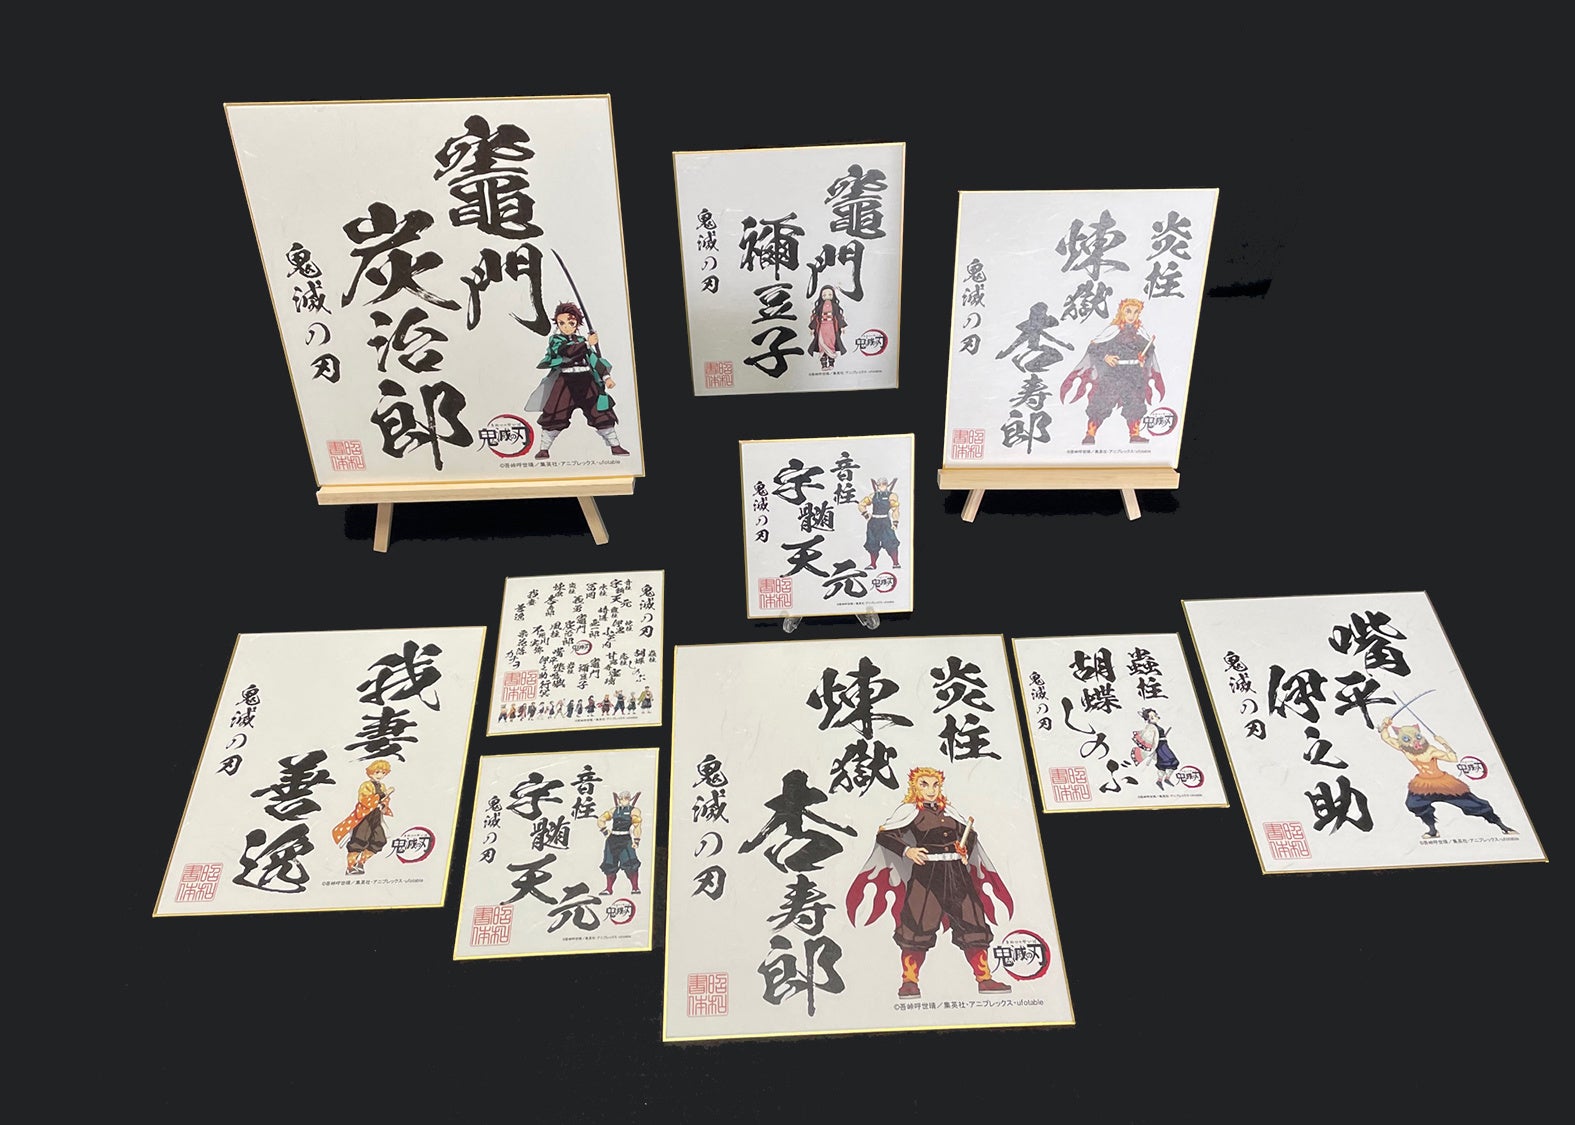 竈門
炭治郎
鬼滅の刃
鬼滅の刃
昭和書体
©吾峠呼世晴／集英社・アニプレックス・ufotable
竈門
禰豆子
鬼滅の刃
鬼滅の刃
昭和書体
©吾峠呼世晴／集英社・アニプレックス・ufotable
炎柱
煉獄
杏寿郎
鬼滅の刃
鬼滅の刃
昭和書体
©吾峠呼世晴／集英社・アニプレックス・ufotable
音柱
宇髄
天元
鬼滅の刃
鬼滅の刃
昭和書体
鬼滅の刃
音柱
宇髄
天元
水柱
冨岡
義勇
炎柱
煉獄
杏寿郎
我妻
善逸
竈門
炭治郎
竈門
禰豆子
胡蝶
しのぶ
栗花落
カナヲ
風柱
不死川
実弥
嘴平
伊之助
鬼滅の刃
昭和書体
我妻
善逸
鬼滅の刃
鬼滅の刃
昭和書体
©吾峠呼世晴／集英社・アニプレックス・ufotable
音柱
宇髄
天元
鬼滅の刃
鬼滅の刃
昭和書体
©吾峠呼世晴／集英社・アニプレックス・ufotable
炎柱
煉獄
杏寿郎
鬼滅の刃
鬼滅の刃
昭和書体
©吾峠呼世晴／集英社・アニプレックス・ufotable
蟲柱
胡蝶
しのぶ
鬼滅の刃
鬼滅の刃
昭和書体
嘴平
伊之助
鬼滅の刃
鬼滅の刃
昭和書体
©吾峠呼世晴／集英社・アニプレックス・ufotable